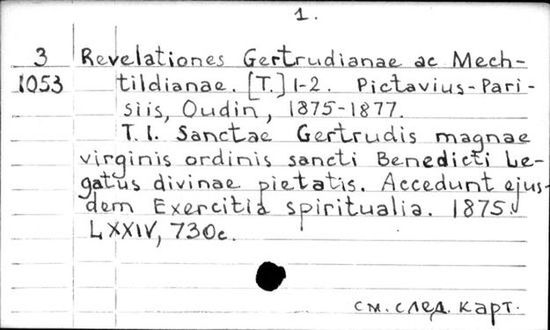 1.
3 Revelationes Gertrudianae ac Mech-
1053 tildianae. [T.] 1-2. Pictavius-Pari-
siis, Oudin, 1875-1877.
T. 1. Sanctae Gertrudis magnae
virginis ordinis sancti Benedicti Le-
gatus divinae pietatis. Accedunt ejus-
dem Exercitia spiritualia. 1875.
LXXIV, 730c.
см. след. карт.